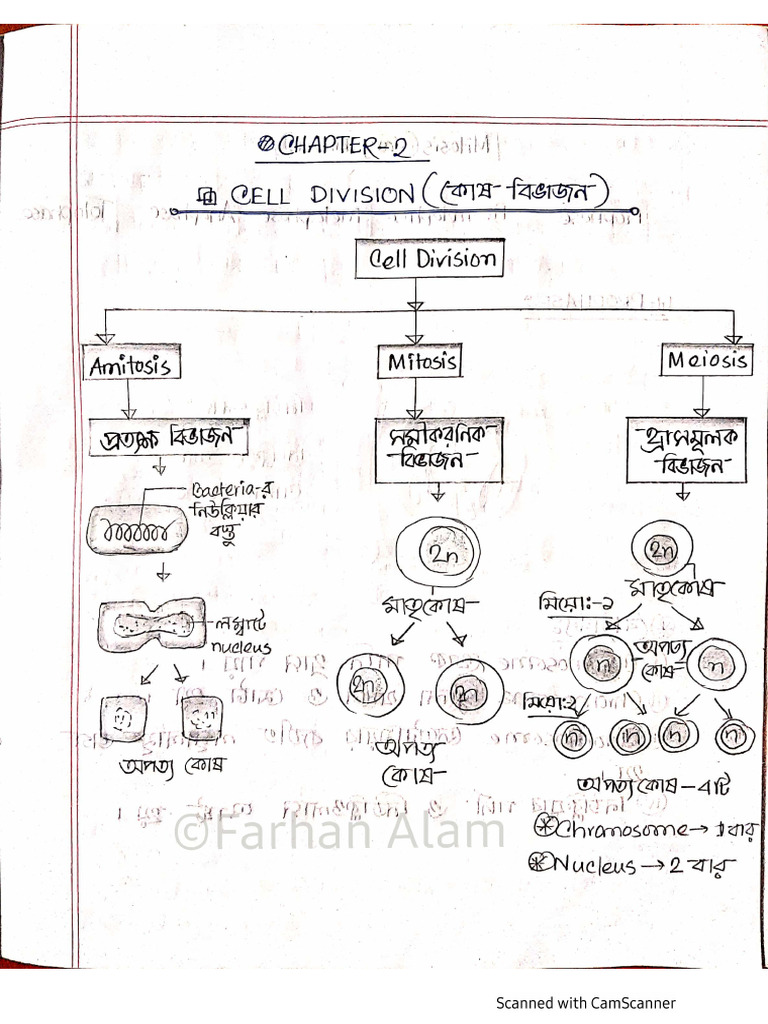 CHAPTER-2
CELL DIVISION (কোষ-বিভাজন)
Cell Division
Amitosis
Mitosis
Meiosis
প্রত্যক্ষ বিভাজন
সমীকরনিক
বিভাজন
হ্রাসমূলক
বিভাজন
Bacteria-র
নিউক্লিয়ার
বস্তু
2n
2n
মাতৃকোষ
মাতৃকোষ
মিয়োঃ-১
লম্বাটে
nucleus
অপত্য
কোষ
n
n
2n
2n
মিয়োঃ২
n
n
n
n
অপত্য কোষ
অপত্য
কোষ
অপত্যকোষ-৪টি
Chromosome→ 1বার
Nucleus → 2 বার
©Farhan Alam
Scanned with CamScanner